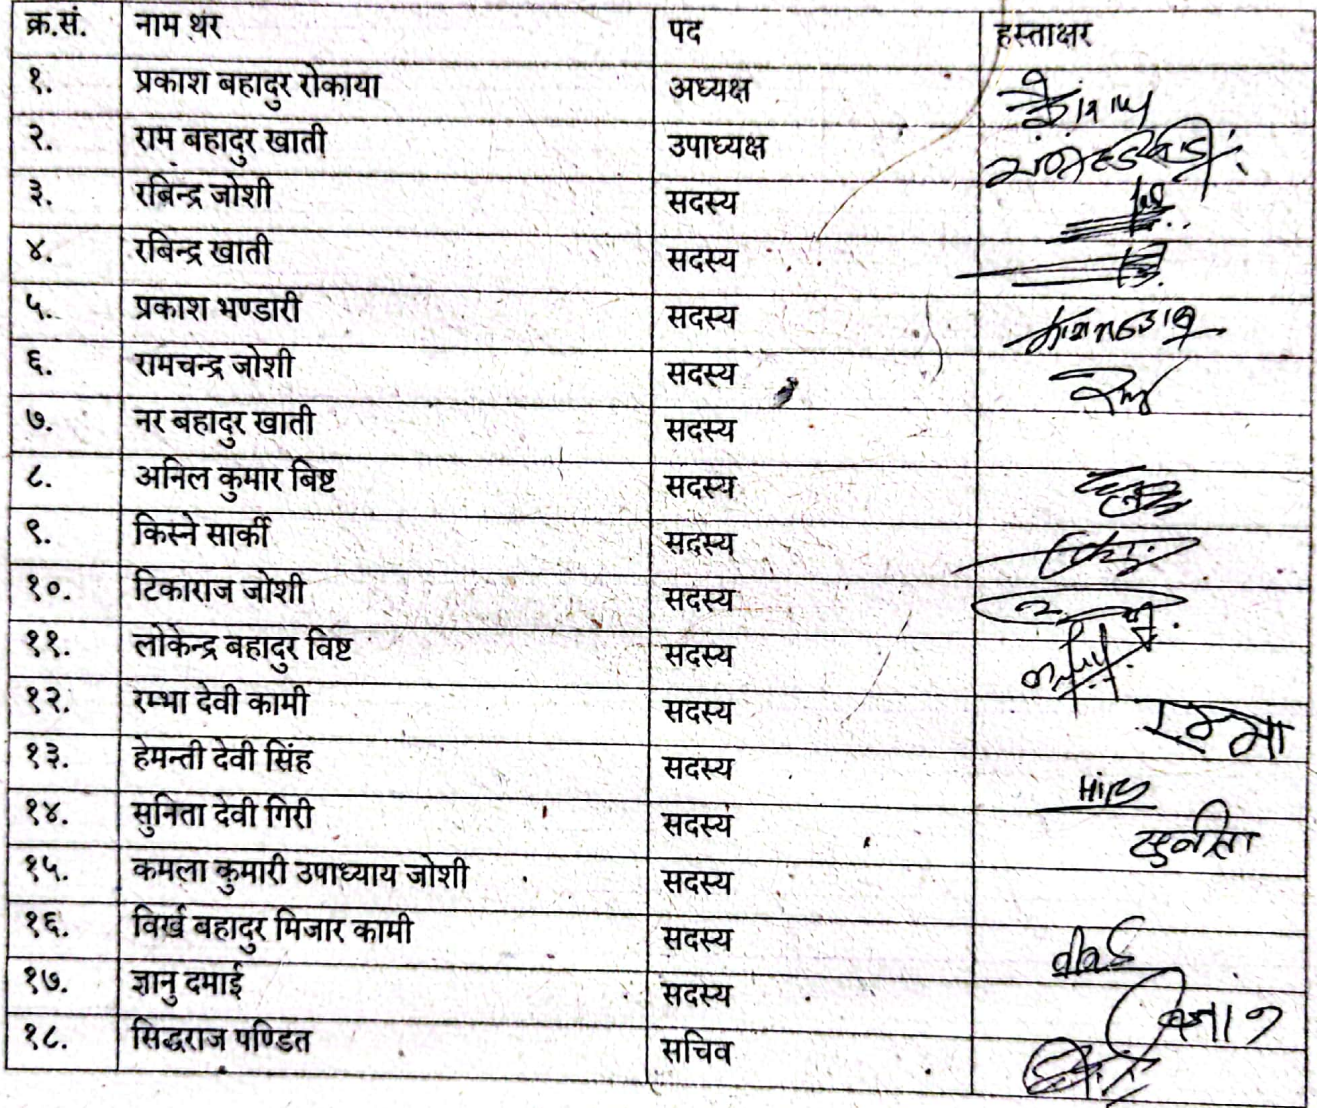 क्र.सं. नाम थर पद हस्ताक्षर
१. प्रकाश बहादुर रोकाया अध्यक्ष
२. राम बहादुर खाती उपाध्यक्ष
३. रबिन्द्र जोशी सदस्य
४. रबिन्द्र खाती सदस्य
५. प्रकाश भण्डारी सदस्य
६. रामचन्द्र जोशी सदस्य
७. नर बहादुर खाती सदस्य
८. अनिल कुमार बिष्ट सदस्य
९. किस्ने सार्की सदस्य
१०. टिकाराज जोशी सदस्य
११. लोकेन्द्र बहादुर विष्ट सदस्य
१२. रम्भा देवी कामी सदस्य रम्भा
१३. हेमन्ती देवी सिंह सदस्य
१४. सुनिता देवी गिरी सदस्य सुनीता
१५. कमला कुमारी उपाध्याय जोशी सदस्य
१६. विर्ख बहादुर मिजार कामी सदस्य
१७. ज्ञानु दमाई सदस्य
१८. सिद्धराज पण्डित सचिव